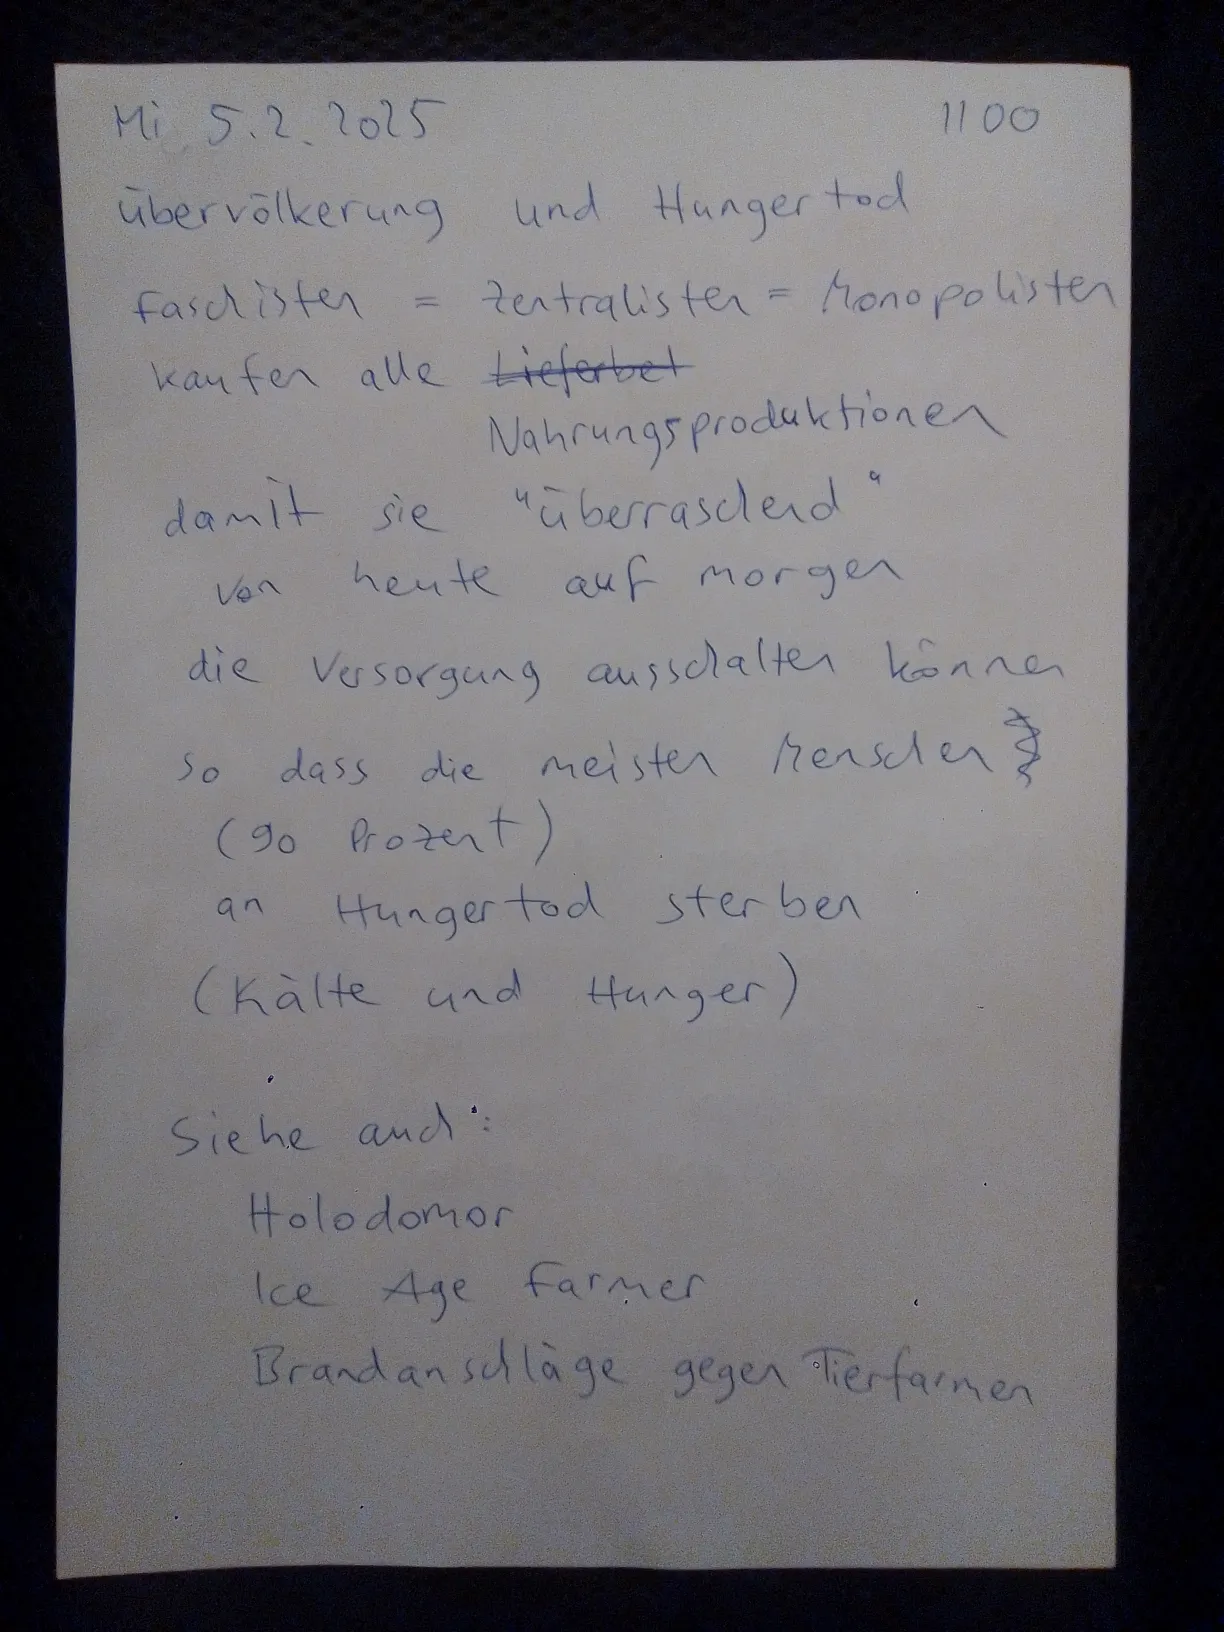 Mi 5.2.2025 1100
übervölkerung und Hungertod
Faschisten = Zentralisten = Monopolisten
kaufen alle Lieferbet
Nahrungsproduktionen
damit sie "überraschend"
von heute auf morgen
die Versorgung ausschalten können
so dass die meisten Menschen
(90 Prozent)
an Hungertod sterben
(Kälte und Hunger)
Siehe auch:
Holodomor
Ice Age Farmer
Brandanschläge gegen Tierfarmen